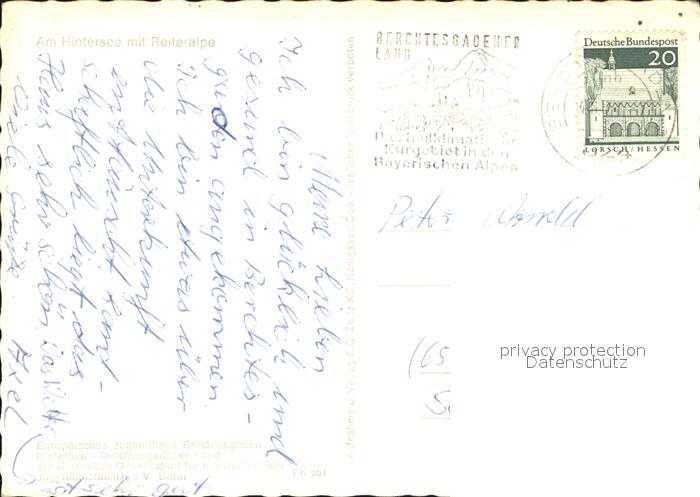 Am Hintersee mit Reiteralpe
Meine Lieben
Ich bin glücklich und
gesund in Berchtes-
gaden angekommen.
Ich bin etwas über
die Unterkunft
enttäuscht. Land-
schaftlich liegt das
Haus sehr schön. Das Wetter
ist sehr gut
Viele Grüße Axel
Europäisches Jugendhaus Berchtesgaden
Hintersee - Berchtesgadener Land
der Deutschen Gesellschaft für internationalen
Jugendaustausch e.V. Bonn
PK 551
BERCHTESGADENER
LAND
Der heilklimatische
Kurgebiet in den
Bayerischen Alpen
Deutsche Bundespost
20
LORSCH/HESSEN
Peter
(65
privacy protection
Datenschutz